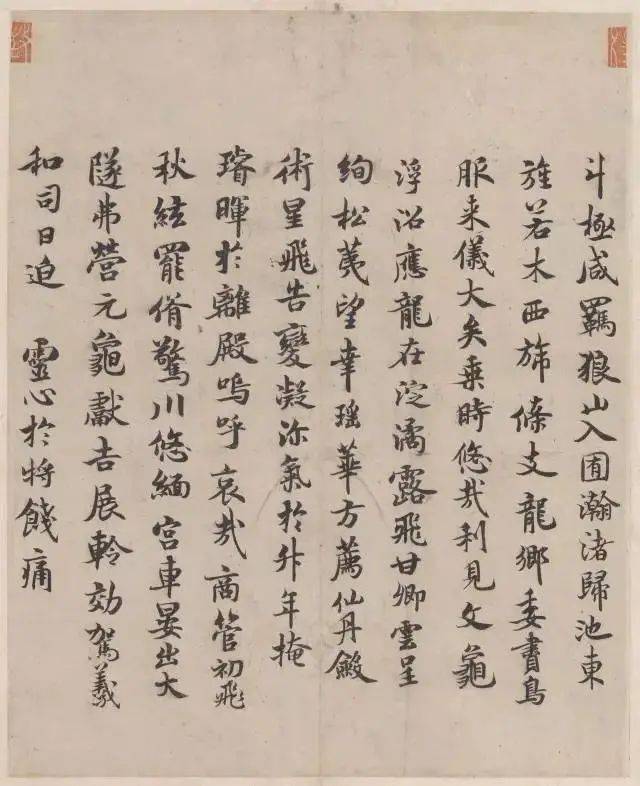 斗極咸羈狼山入囿瀚渚歸池東
旌若木西旆條支龍鄉委書鳥
服来儀大矣乘時悠哉利見文龜
浮沼應龍在淀濡露飛甘卿雲呈
絢松荑望幸瑶華方薦仙丹斂
術星飛告變凝沴氣於升年掩
璿暉於離殿嗚呼哀哉商管初飛
秋絃罷脩驚川悠緬宮車晏出大
隧弗營元龜獻吉展軨効駕羲
和司日迫 靈心於将餞痛